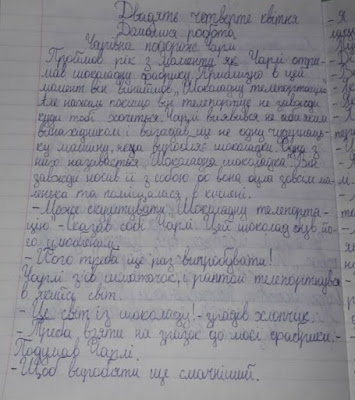 Двадцяте четверте квітня
Домашня робота
Чарівна подорож Чарлі
Пройшов рік з моменту як Чарлі отри-
мав шоколадну фабрику. Приблизно в цей
момент він винайшов „Шоколадну телепортацію"
але нажаль поспішо він телепортує не завжди
куди тобі хочеться. Чарлі виявився не
винахідником і вигадав ще не одну
машину, яка виробляє шоколадки. Одна з
них називається „Шоколадна шоколадка". Він
завжди носив її з собою бо вона була зовсім ма-
ленька та поміщалася в кишені.
– Може скуштувати „Шоколадну телепорта-
цію" – сказав собі Чарлі. Цей шоколад був йо-
го улюбленим.
– Його треба ще раз випробувати!
Чарлі з'їв шматочок, і раптом телепортувався
в якийсь світ.
– Це світ із шоколаду! – зрадів хлопчик.
– Треба взяти на зразок до моєї фабрики. –
Подумав Чарлі.
– Щоб виробляти ще смачніший.